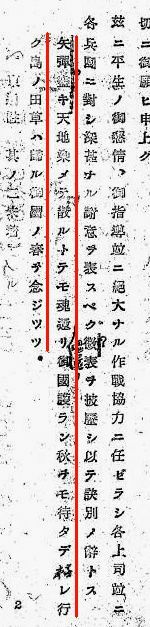 切ニ御願ヒ申上グ
茲ニ平生ノ御懇情、御指導竝ニ絶大ナル作戰協力ニ任ゼラレシ各上司竝ニ
各兵團ニ對シ深甚ナル謝意ヲ表スベク微衷ヲ披瀝シ以テ訣別ノ辭トス
矢彈盡キ天地染メテ散ルトテモ魂還リ魂還リ御國護ラン
秋ヲモ待タデ枯レ行ク島ノ田草ハ歸ル御國ノ春ヲ念ジツツ
2